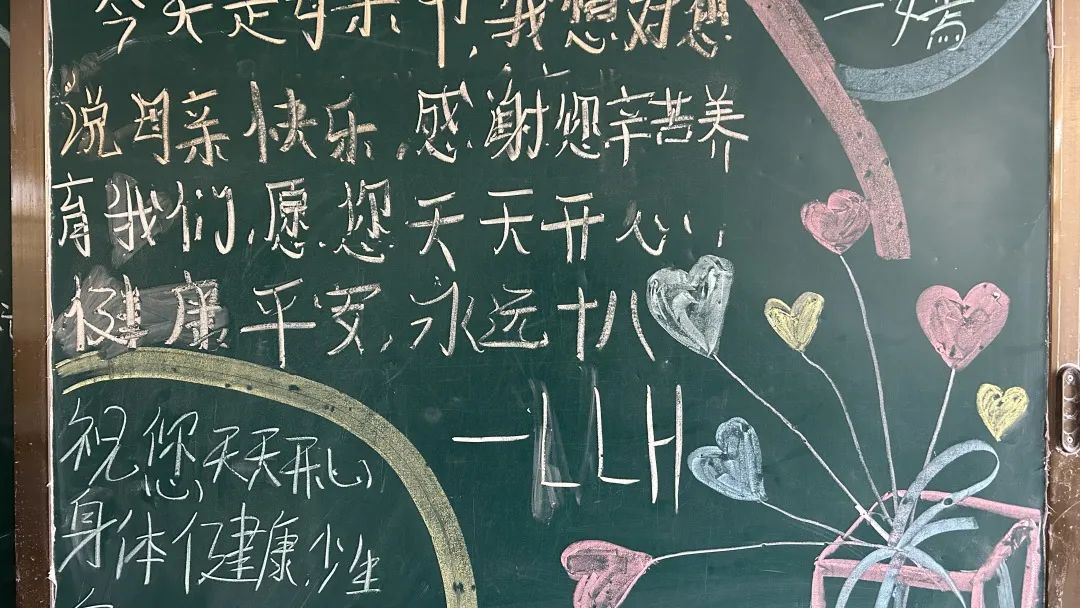 今天是母亲节,我想对您
说母亲快乐,感谢您辛苦养
育我们,愿您天天开心,
健康平安,永远十八
—LLH
祝您天天开心
身体健康,少生